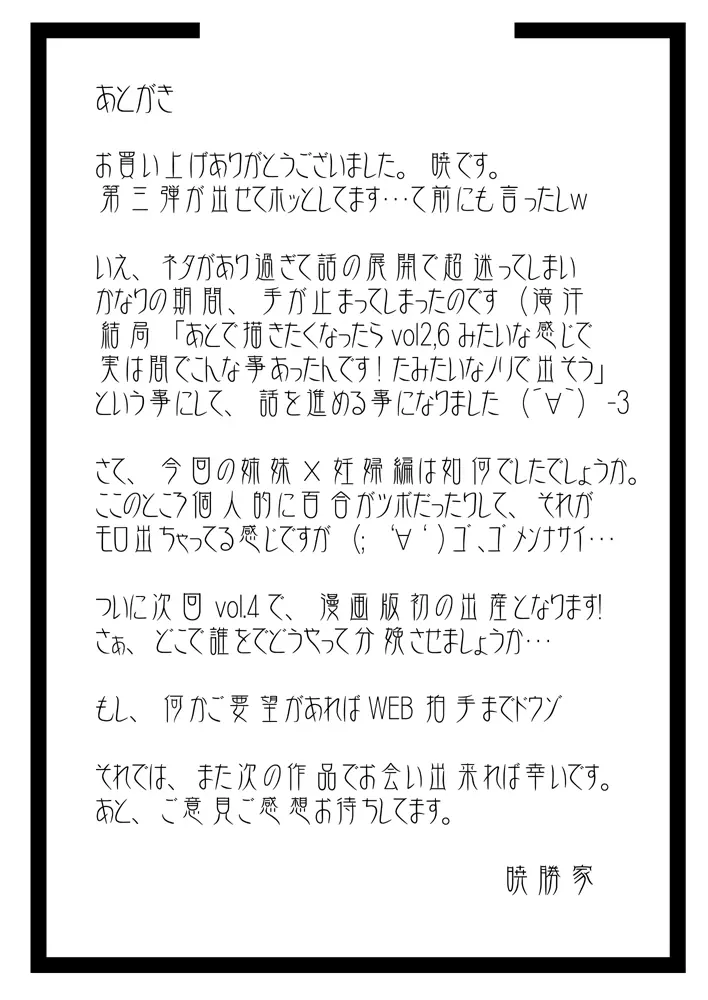 あとがき
お買い上げありがとうございました。 暁です。
第三弾が出せてホッとしてます…て前にも言ったしw
いえ、ネタがあり過ぎて話の展開で超迷ってしまい
かなりの期間、手が止まってしまったのです（滝汗
結局「あとで描きたくなったらvol2,6みたいな感じで
実は間でこんな事あったんです！たみたいなノリで出そう」
という事にして、話を進める事になりました（´∀｀）-3
さて、今回の姉妹×妊婦編は如何でしたでしょうか。
ここのところ個人的に百合がツボだったりして、それが
モロ出ちゃってる感じですが（；‘∀‘）ゴ、ゴメンナサイ…
ついに次回vol.4で、漫画版初の出産となります!
さぁ、どこで誰をでどうやって分娩させましょうか…
もし、何かご要望があればWEB拍手までドウゾ
それでは、また次の作品でお会い出来れば幸いです。
あと、ご意見ご感想お待ちしてます。
暁勝家